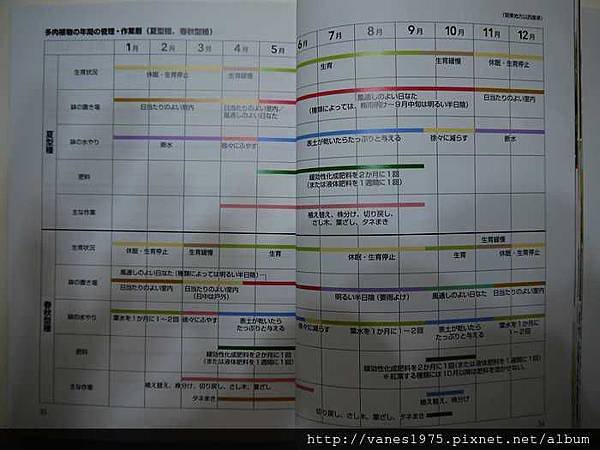 多肉植物の年間の管理・作業暦（夏型種、春秋型種）
（関東地方以西基準）
1月 2月 3月 4月 5月 6月 7月 8月 9月 10月 11月 12月
夏型種
生育状況
休眠・生育停止
生育緩慢
生育
生育緩慢
休眠・生育停止
鉢の置き場
日当たりのよい室内
日当たりのよい室内／
風通しのよい日なた
風通しのよい日なた
（種類によっては、梅雨明け〜9月中旬は明るい半日陰）
日当たりのよい室内
鉢の水やり
断水
徐々にふやす
表土が乾いたらたっぷりと与える
徐々に減らす
断水
肥料
緩効性化成肥料を2か月に1回
（または液体肥料を1週間に1回）
主な作業
植え替え、株分け、切り戻し、
さし木、葉ざし、タネまき
春秋型種
生育状況
休眠・生育停止
生育緩慢
生育
休眠・生育停止
生育
生育緩慢
休眠・生育停止
鉢の置き場
風通しのよい日なた（種類によっては明るい半日陰）
日当たりのよい室内
日当たりのよい室内
（日中は戸外）
明るい半日陰（要雨よけ）
風通しのよい日なた
日当たりのよい室内
鉢の水やり
葉水を1か月に1〜2回
徐々にふやす
表土が乾いたら
たっぷりと与える
徐々に減らす
葉水を1か月に1〜2回
表土が乾いたら
たっぷりと与える
葉水を1か月に
1〜2回
肥料
緩効性化成肥料を2か月に1回
（または液体肥料を1週間に1回）
緩効性化成肥料を2か月に1回（または液体肥料を1週間に1回）
※紅葉する種類には10月以降は肥料を施かせない。
主な作業
植え替え、株分け、切り戻し、さし木、葉ざし
タネまき
植え替え、株分け
切り戻し、さし木、葉ざし、タネまき
http://vanes1975.pixnet.net/album